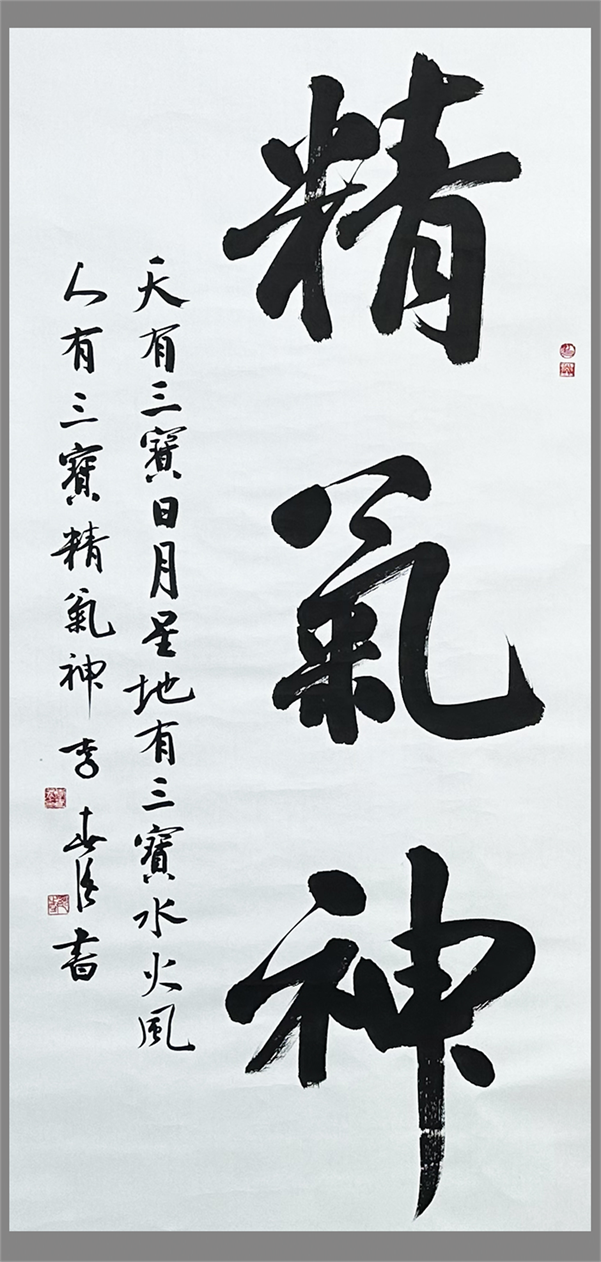 精氣神
天有三寶日月星地有三寶水火風
人有三寶精氣神 李 書